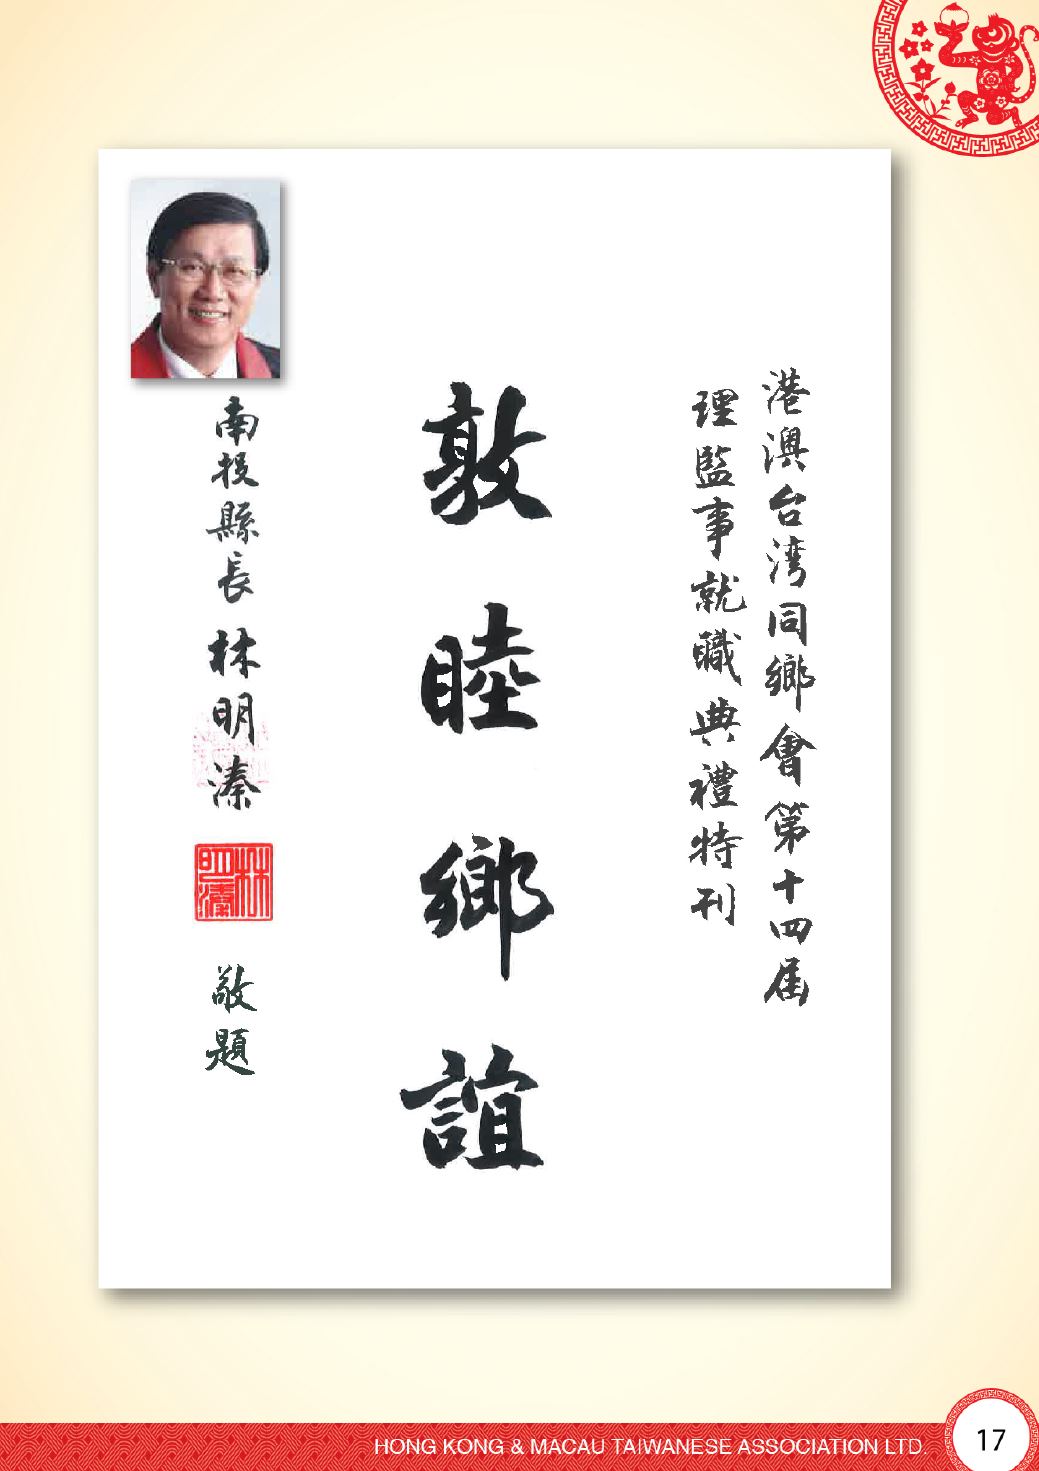 港澳台湾同鄉會第十四届
理監事就職典禮特刊
敦睦鄉誼
南投縣長 林明溱
林明溱
敬題
HONG KONG & MACAU TAIWANESE ASSOCIATION LTD.
17